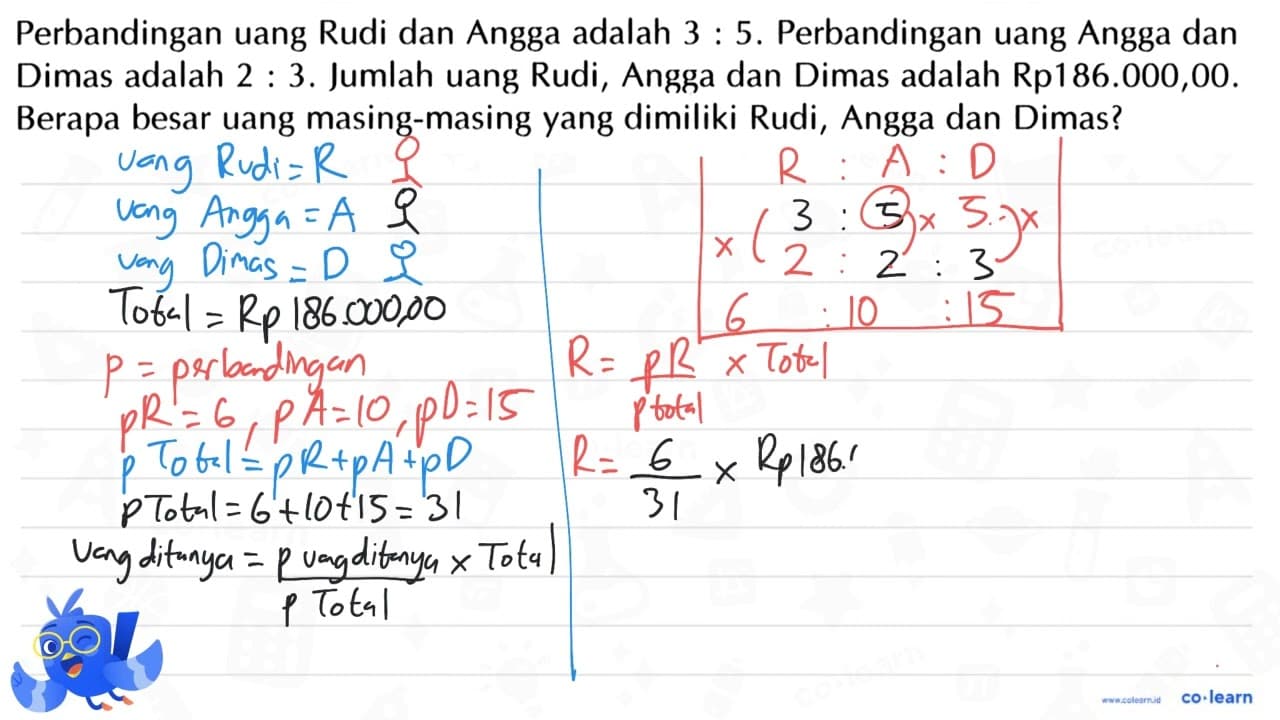 Perbandingan uang Rudi dan Angga adalah 3 : 5. Perbandingan uang Angga dan
Dimas adalah 2 : 3. Jumlah uang Rudi, Angga dan Dimas adalah Rp186.000,00.
Berapa besar uang masing-masing yang dimiliki Rudi, Angga dan Dimas?
uang Rudi = R
uang Angga = A
uang Dimas = D
Total = Rp 186.000,00
p = perbandingan
pR = 6, pA = 10, pD = 15
p Total = pR + pA + pD
p Total = 6 + 10 + 15 = 31
Uang ditanya = p uang ditanya × Total
p Total
R : A : D
3 : 5 × 5 ×
× ( 2 : 2 : 3
6 : 10 : 15
R = pR × Total
p total
R = 6 × Rp186.
31
www.colearn.id co·learn